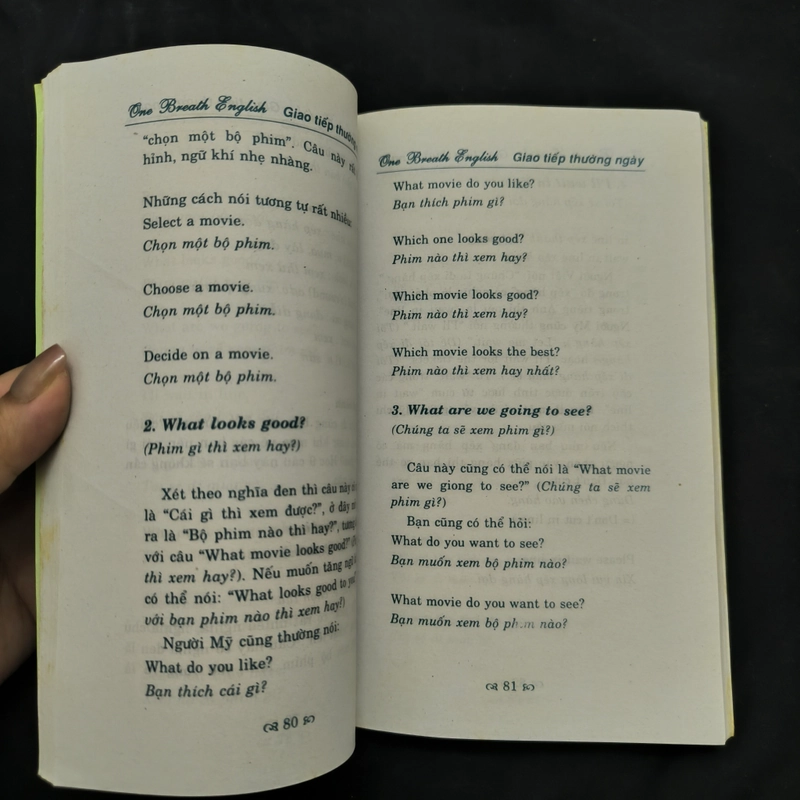 One Breath English Giao tiếp thường
"chọn một bộ phim". Câu này
hình, ngữ khí nhẹ nhàng.
Những cách nói tương tự rất nhiều:
Select a movie.
Chọn một bộ phim.
Choose a movie.
Chọn một bộ phim.
Decide on a movie.
Chọn một bộ phim.
2. What looks good?
(Phim gì thì xem hay?)
Xét theo nghĩa đen thì câu này
là "Cái gì thì xem được?", ở đây
ra là "Bộ phim nào thì hay?",
với câu "What movie looks good?"
thì xem hay?). Nếu muốn tăng
có thể nói: "What looks good to
với bạn phim nào thì xem hay?)
Người Mỹ cũng thường nói:
What do you like?
Bạn thích cái gì?
80
One Breath English Giao tiếp thường ngày
What movie do you like?
Bạn thích phim gì?
Which one looks good?
Phim nào thì xem hay?
Which movie looks good?
Phim nào thì xem hay?
Which movie looks the best?
Phim nào thì xem hay nhất?
3. What are we going to see?
(Chúng ta sẽ xem phim gì?)
Câu này cũng có thể nói là "What movie
are we giong to see?" (Chúng ta sẽ xem
phim gì?)
Bạn cũng có thể hỏi:
What do you want to see?
Bạn muốn xem bộ phim nào?
What movie do you want to see?
Bạn muốn xem bộ phim nào?
81